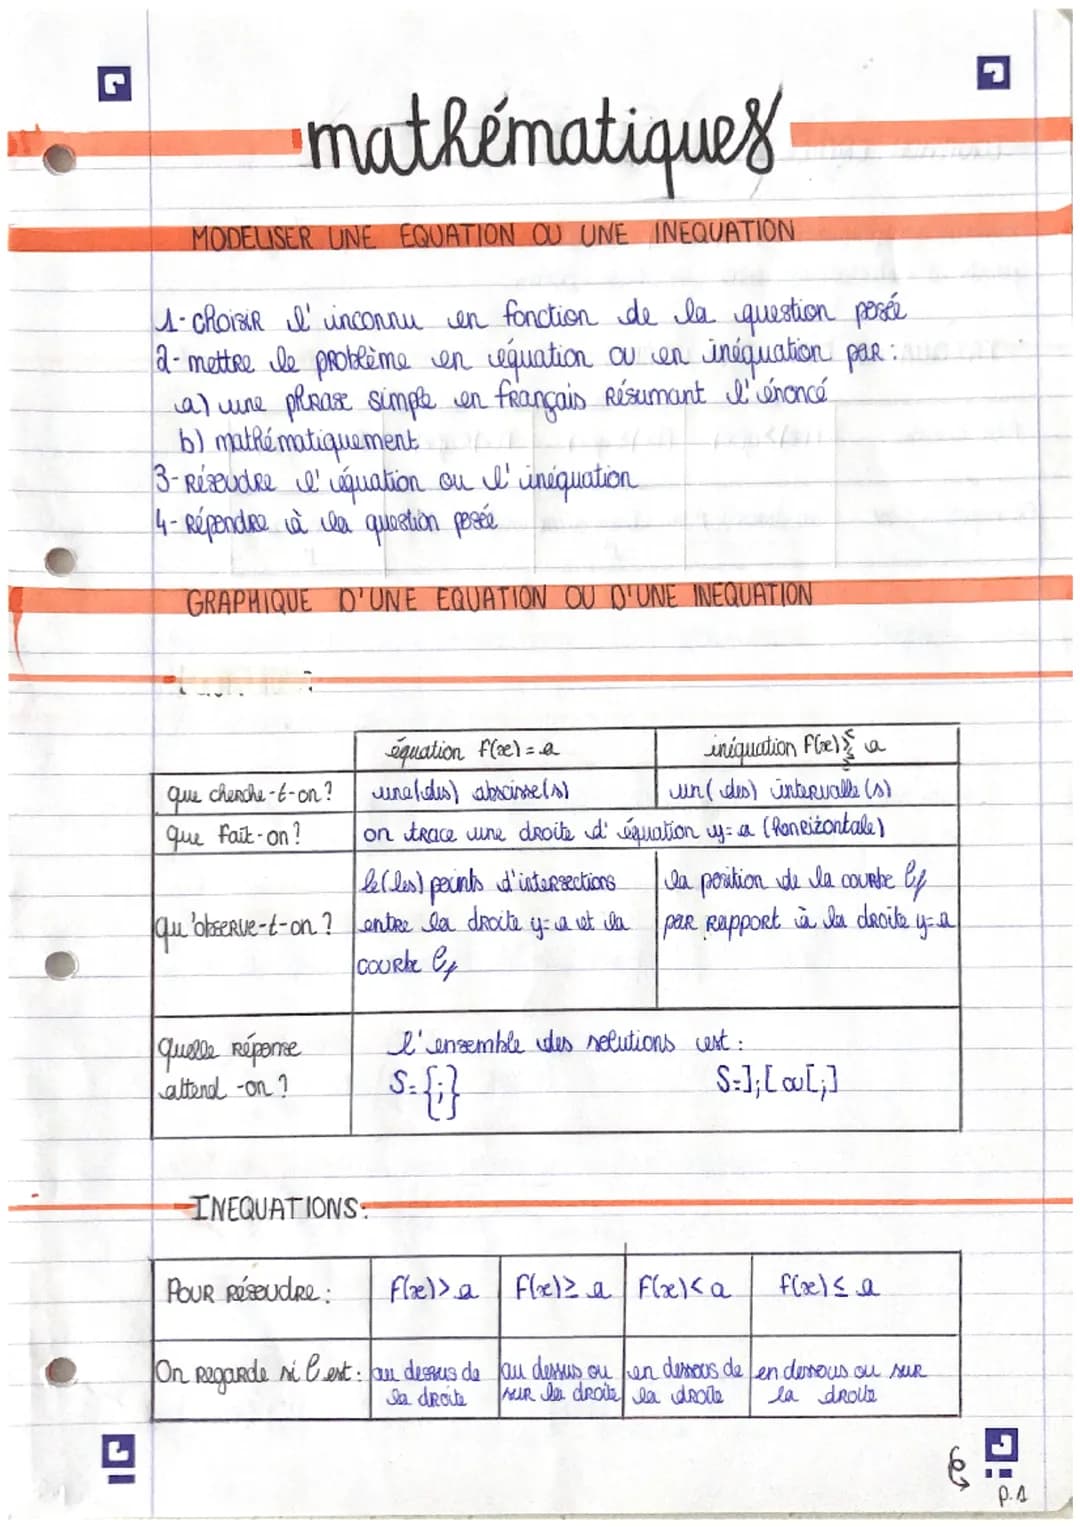 mathématiques
MODELISER UNE EQUATION OU UNE INEQUATION
1- choisir l'inconnu en fonction de la question posée
2- mettre le problème en équation ou en inéquation par :
a) une phrase simple en français résumant l'énoncé
b) mathématiquement
3- Résoudre l'équation ou l'inéquation
4- Répondre à la question posée
GRAPHIQUE D'UNE EQUATION OU D'UNE INEQUATION
équation f(x) = a
inéquation f(x) a
que cherche-t-on ?
une(des) abscisse(s)
un(des) intervalle(s)
que fait-on ?
on trace une droite d'équation y=a (honrizontale)
qu'observe-t-on ?
le(les) points d'intersections
entre la droite y=a et la
courbe Cf
la position de la courbe Cf
par rapport à la droite y=a
Quelle réponse
attend-on ?
l'ensemble des solutions est :
S={;}
S=];[ ou [;]
INEQUATIONS:
Pour résoudre :
f(x)> a
f(x)≥ a
f(x)< a
f(x)≤ a
On regarde si C est :
au dessus de
la droite
au dessus ou
sur la droite
en dessous de
la droite
en dessous ou sur
la droite
p.1